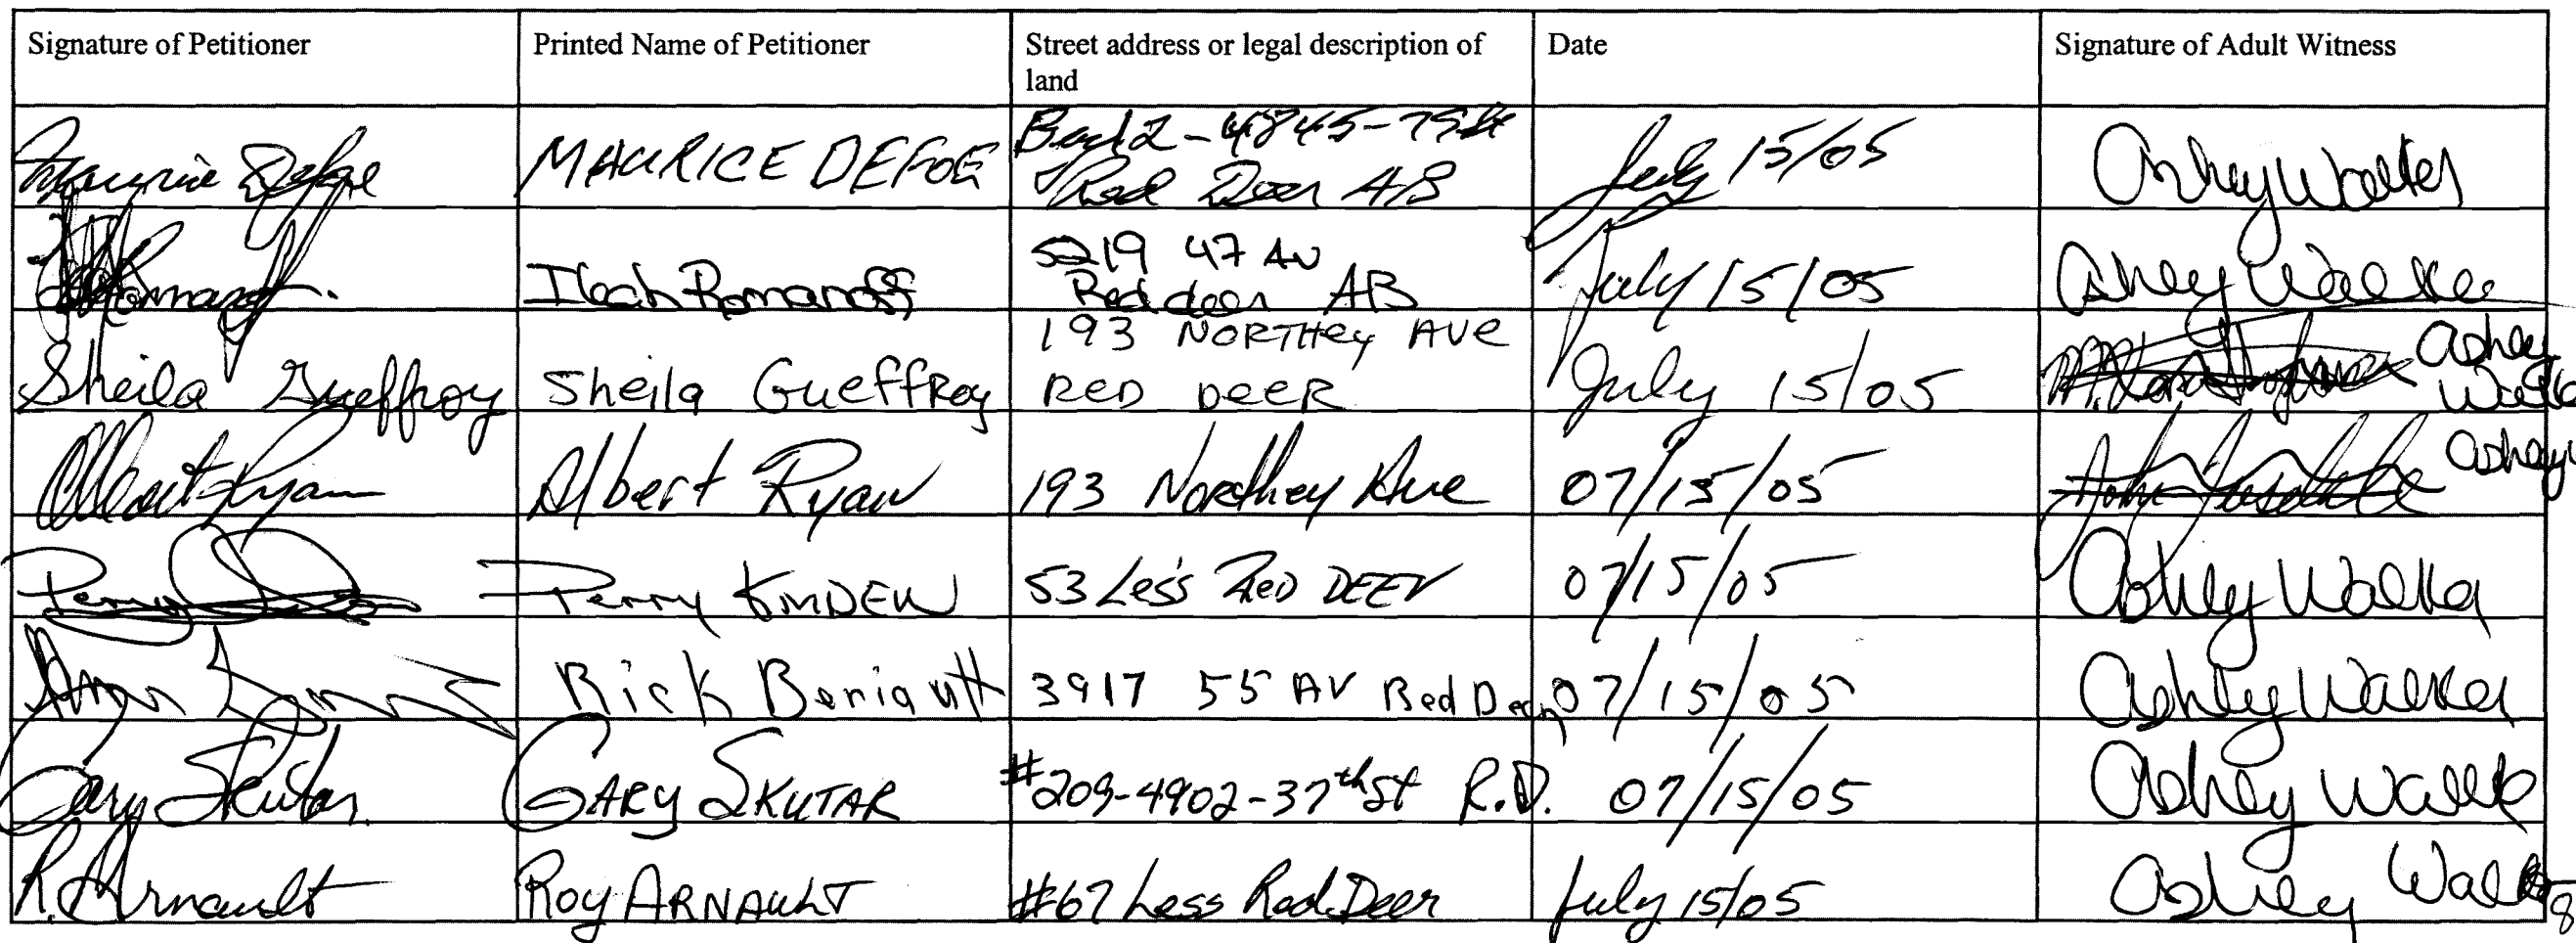 Signature of Petitioner Printed Name of Petitioner Street address or legal description of Date Signature of Adult Witness
land
Maurice Defoe MAURICE DEFOE 2-4845-79St July 15/05 Ashley Walker
Red Deer AB
Romanoff Romanoff 5219 47 AV July 15/05 Ashley Walker
Red deer AB
Sheila Gueffroy Sheila GueffRoy 193 NORTHey AVe July 15/05 Ashley
RED DeeR Walke
Albert Ryan Albert Ryan 193 Northey Ave 07/15/05 Ashley
Perry Perry 53 Les's RED DEEr 07/15/05 Ashley Walker
Rick Beriault 3917 55 AV Red Deer 07/15/05 Ashley Walker
Gary Skutar GARY SKUTAR #209-4902-37th St R.D. 07/15/05 Ashley Walke
R. Arnault ROY ARNAULT #67 Less Red Deer July 15/05 Ashley Walke
8